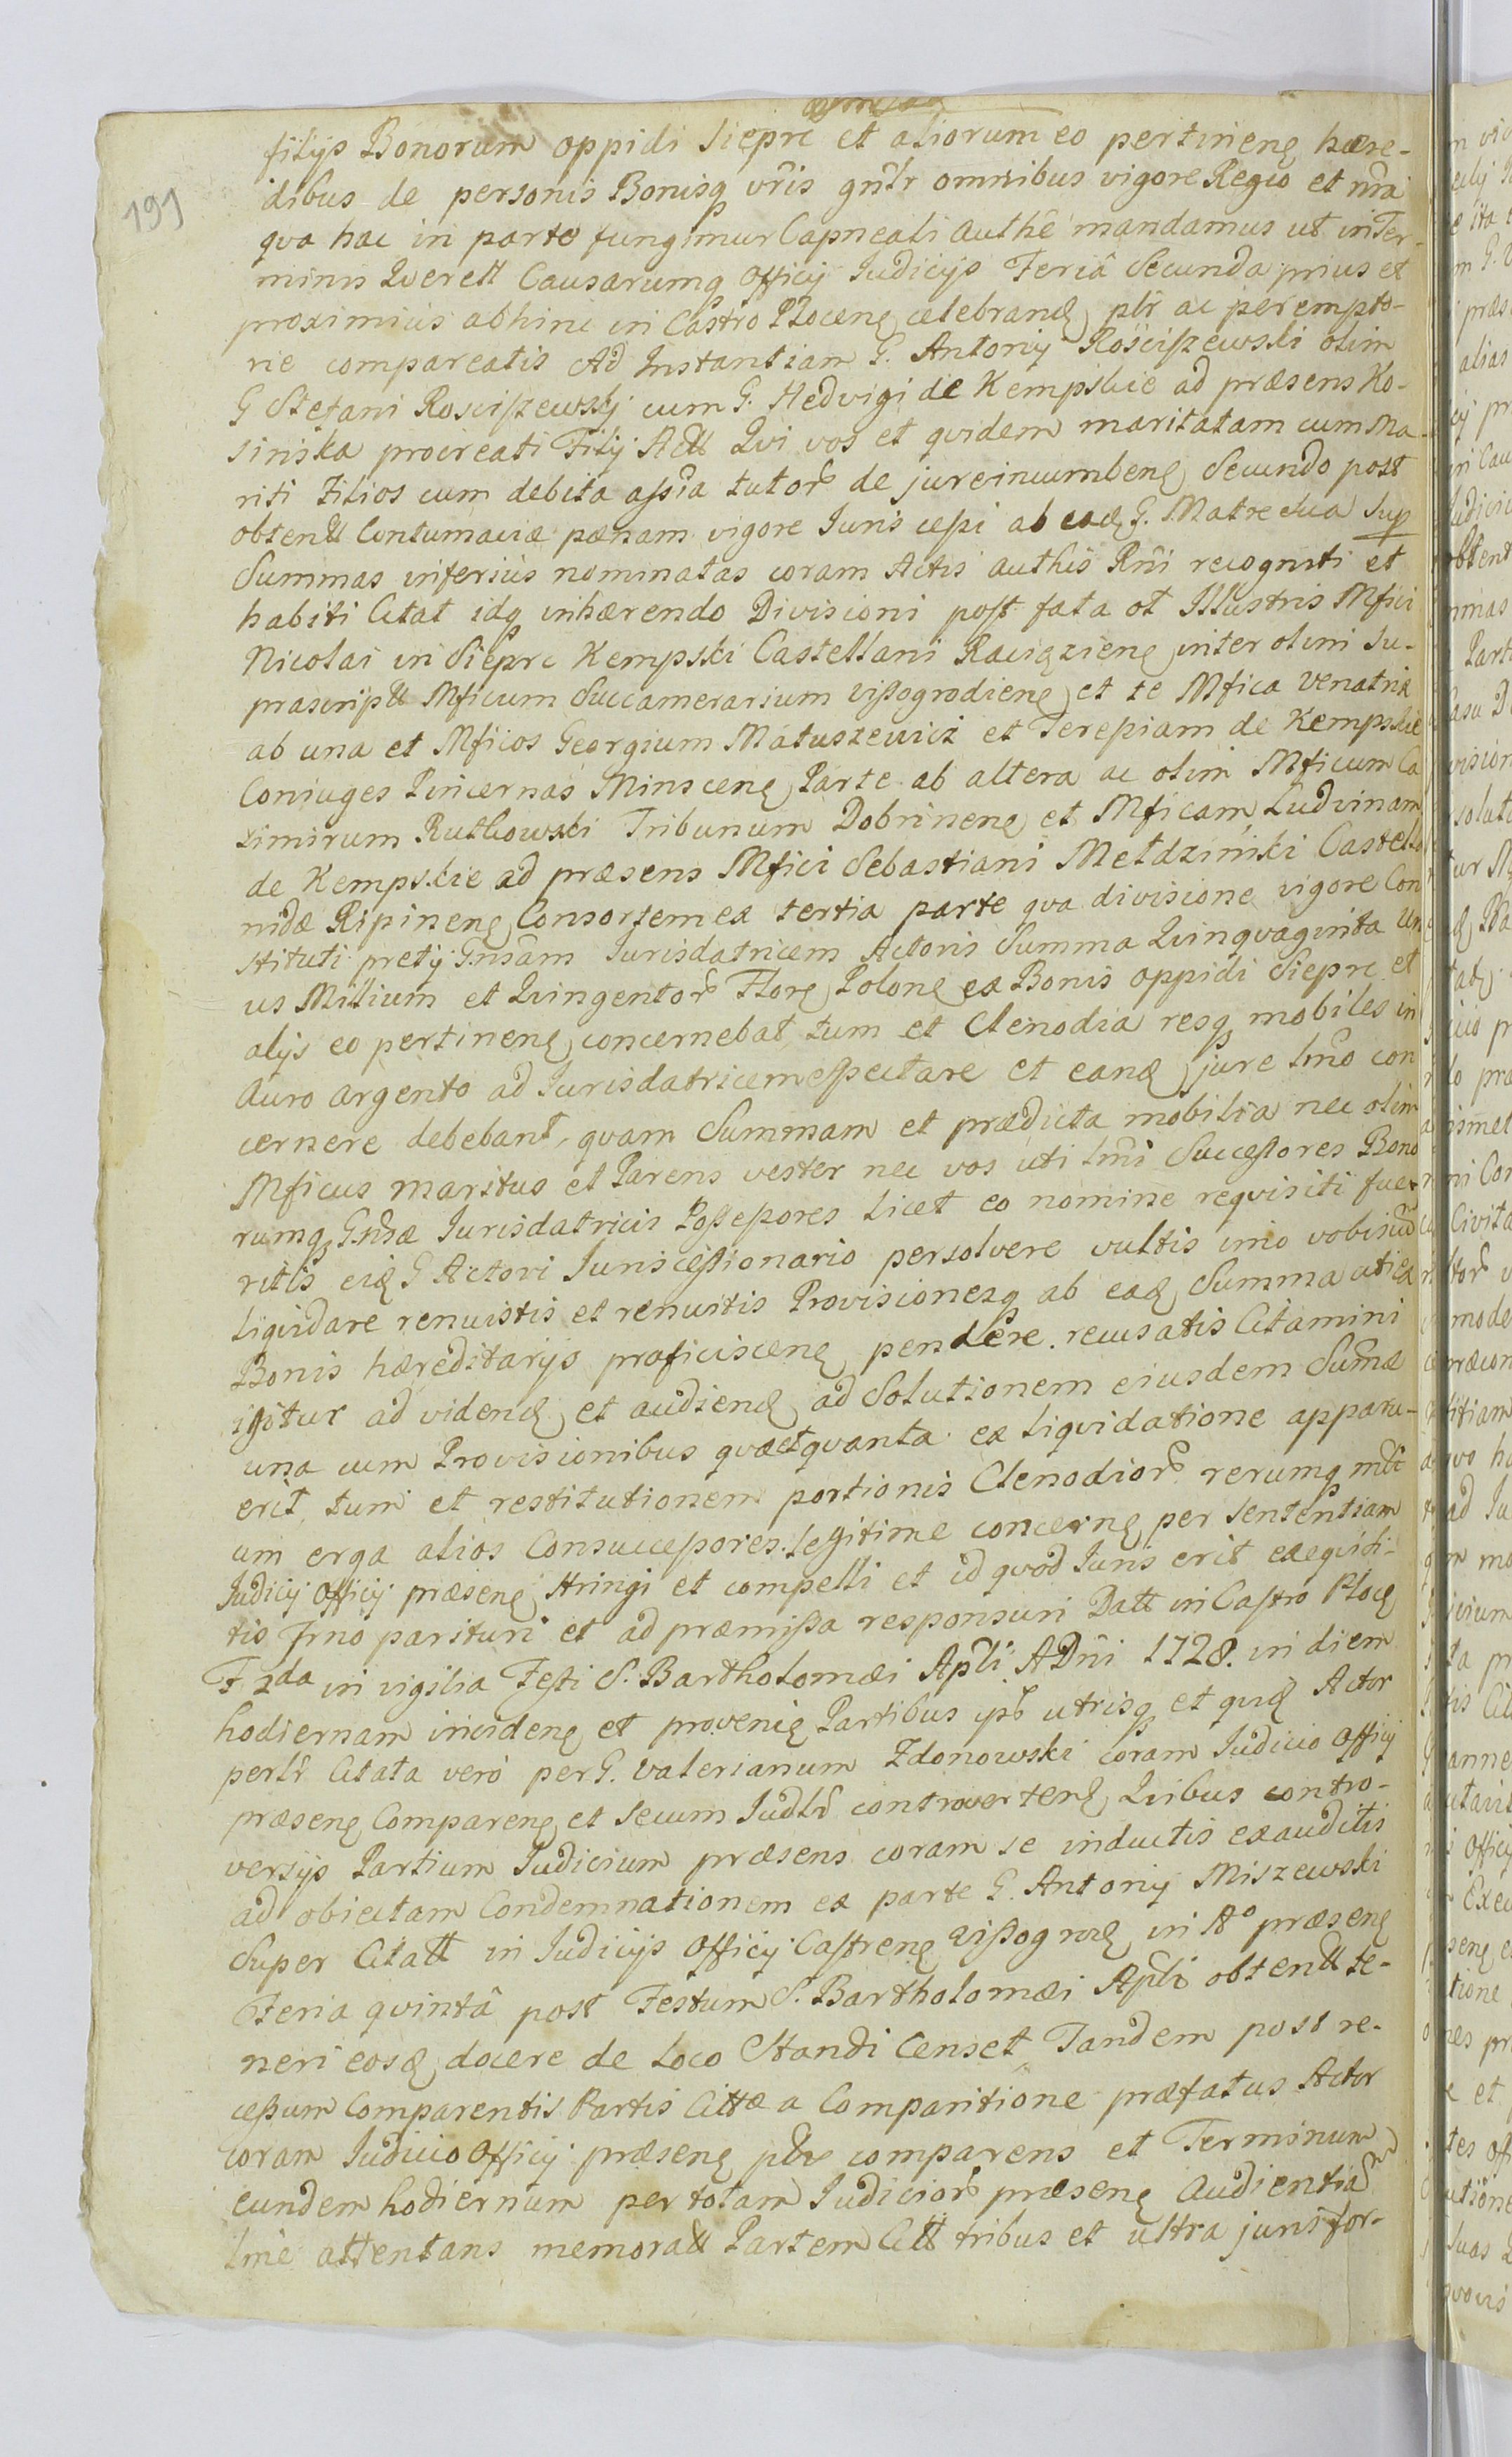 191
filijs Bonorum oppidi Siepre et aliorum eo pertineng hære-
dibus de personis Bonisq vr̃is gñlr omnibus vigore Regio et nr̃a
qva hac in parte fungimur Capneali Authẽ mandamus ut in Ter-
minis Qverell Causarumq Officij Judicijs Feriâ Secunda prius et
proximius abhinc in Castro Ploceng celebrand plr̃ ac perempto-
rie compareatis Ad Instantiam G. Antonij Rosciszewski olim
G Stefani Rosciszewskj cum G. Hedvigi de Kempskie ad præsens Ko-
sinska procreati Filij Act Qvi vos et qvidem maritatam cum Ma-
riti Filios cum debita assia tutor de jure incumbeng Secundo post
obtent Contumaciæ pænam vigore Juris cessi ab ead G. Matre Sua Sup
Summas inferius nominatas coram Actis Authis Rñi recogniti et
habiti Citat idq inhærendo Divisioni post fata ol Illustris Mfici
Nicolai in Siepre Kempski Castellani Raciązieng inter olim Su-
prascript Mficum Succamerarium Vissogrodieng et te Mfica Venatrix
ab una et Mficos Georgium Matuszewicz et Teressiam de Kempskie
Coniuges Pincernas Minsceng Parte ab altera ac olim Mficum Ca
zimirum Rutkowski Tribunum Dobrineng et Mficam Ludvinam
de Kempskie ad præsens Mfici Sebastiani Mełdziński Castella
nidæ Ripineng Consortem ex tertia parte qva divisione vigore Con
stituti pretij Gnsam Jurisdatricem Actoris Summa Qvinqvaginta Un
us Milium et Qvingentor Flor Polon ex Bonis oppidi Siepre et
alijs eo pertineng concernebat tum et Clenodia resq mobiles in
Auro argento ad Jurisdatricem spectare et eand jure lm̃o con
cernere debebant, qvam Summam et prædicta mobilia nec olim
Mficus maritus et Parens vester nec vos uti lm̃i Successores Bono
rumq Gnsæ Jurisdatricis Possessores licet eo nomine reqvisiti fue-
ritis eid G Actori Juriscessionario persolvere vultis imo vobiscum
liqvidare renuistis et renuitis Provisionesq ab ead Summa uti ex
Bonis hæreditarijs proficisceng pendere recusatis Citamini
igitur ad videnđ et audienđ ad Solutionem eiusdem Sum̃æ
una cum Provisionibus qvæ et qvanta ex liqvidatione apparu-
erit, tum et restitutionem portionis Clenodior rerumq mlt
um erga alios Consuccessores legitime concerng per Sententiam
Judicij Officij præseng stringi et compelli et id qvod Juris erit exeqviti-
tis Trno parituri et ad præmissa responsuri Datt in Castro Ploc
F. 2da in vigilia Festi S. Bartholomæi Apli ADñi 1728. in diem
hodiernam incideng et proveni Partibus ipst utrisq et qvid Actor
perlr̃ Citata vero per G. Valerianum Zdonowski coram Judicio Officij
præseng Compareng et Secum Judlr controvertend Qvibus contro-
versijs Partium Judicium præsens coram se inductis exauditis
ad obiectam Condemnationem ex parte G. Antonij Miszewski
Super Citatt in Judicijs Officij Castreng Vissogrod in Ao præseng
Feria qvintâ post Festum S. Bartholomæi Apli obtentt te-
neri eosd docere de Loco Standi Censet Tandem post re-
cessum Comparentis Partis Cittæ a Comparitione præfatus Actor
coram Judicio Officij præseng plr comparens et Terminum
eundem hodiernum per totam Judicior præseng Audientiam
lm̃e attentans memoratt Partem Citt tribus et ultra juris for-